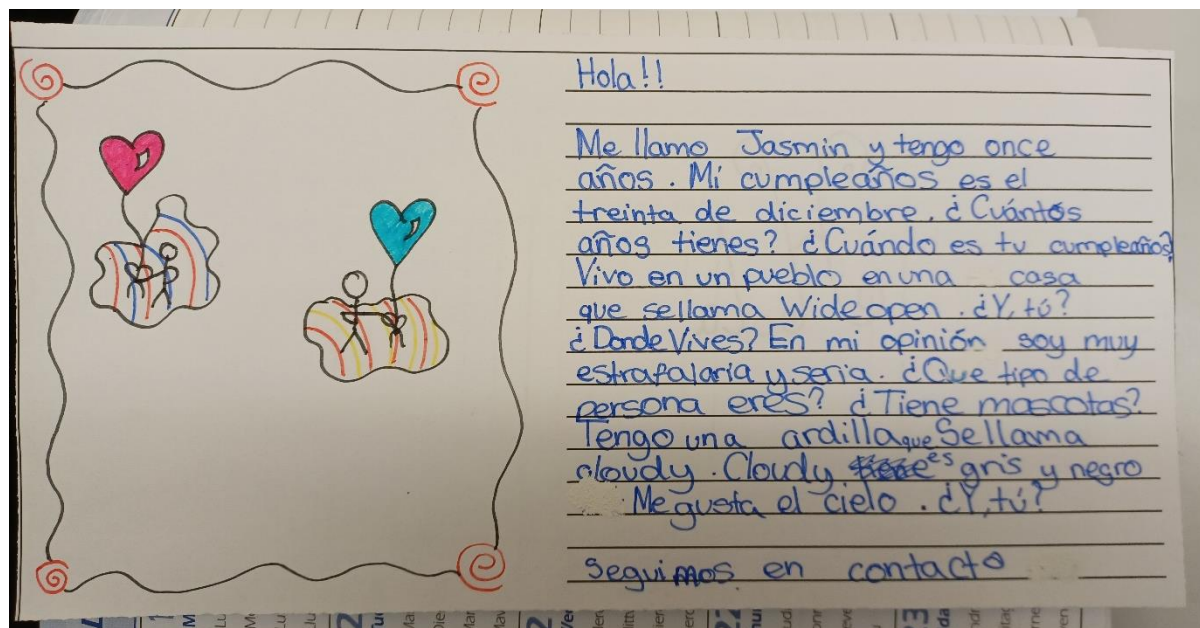 Hola!!
Me llamo Jasmin y tengo once
años. Mi cumpleaños es el
treinta de diciembre. ¿Cuántos
años tienes? ¿Cuándo es tu cumpleaños?
Vivo en un pueblo en una casa
que sellama Wide open. ¿Y, tú?
¿Donde Vives? En mi opinión soy muy
estrafalaria y seria. ¿Que tipo de
persona eres? ¿Tiene mascotas?
Tengo una ardilla que Sellama
cloudy. Cloudy es gris y negro
Me gusta el cielo. ¿Y, tú?
Seguimos en contacto